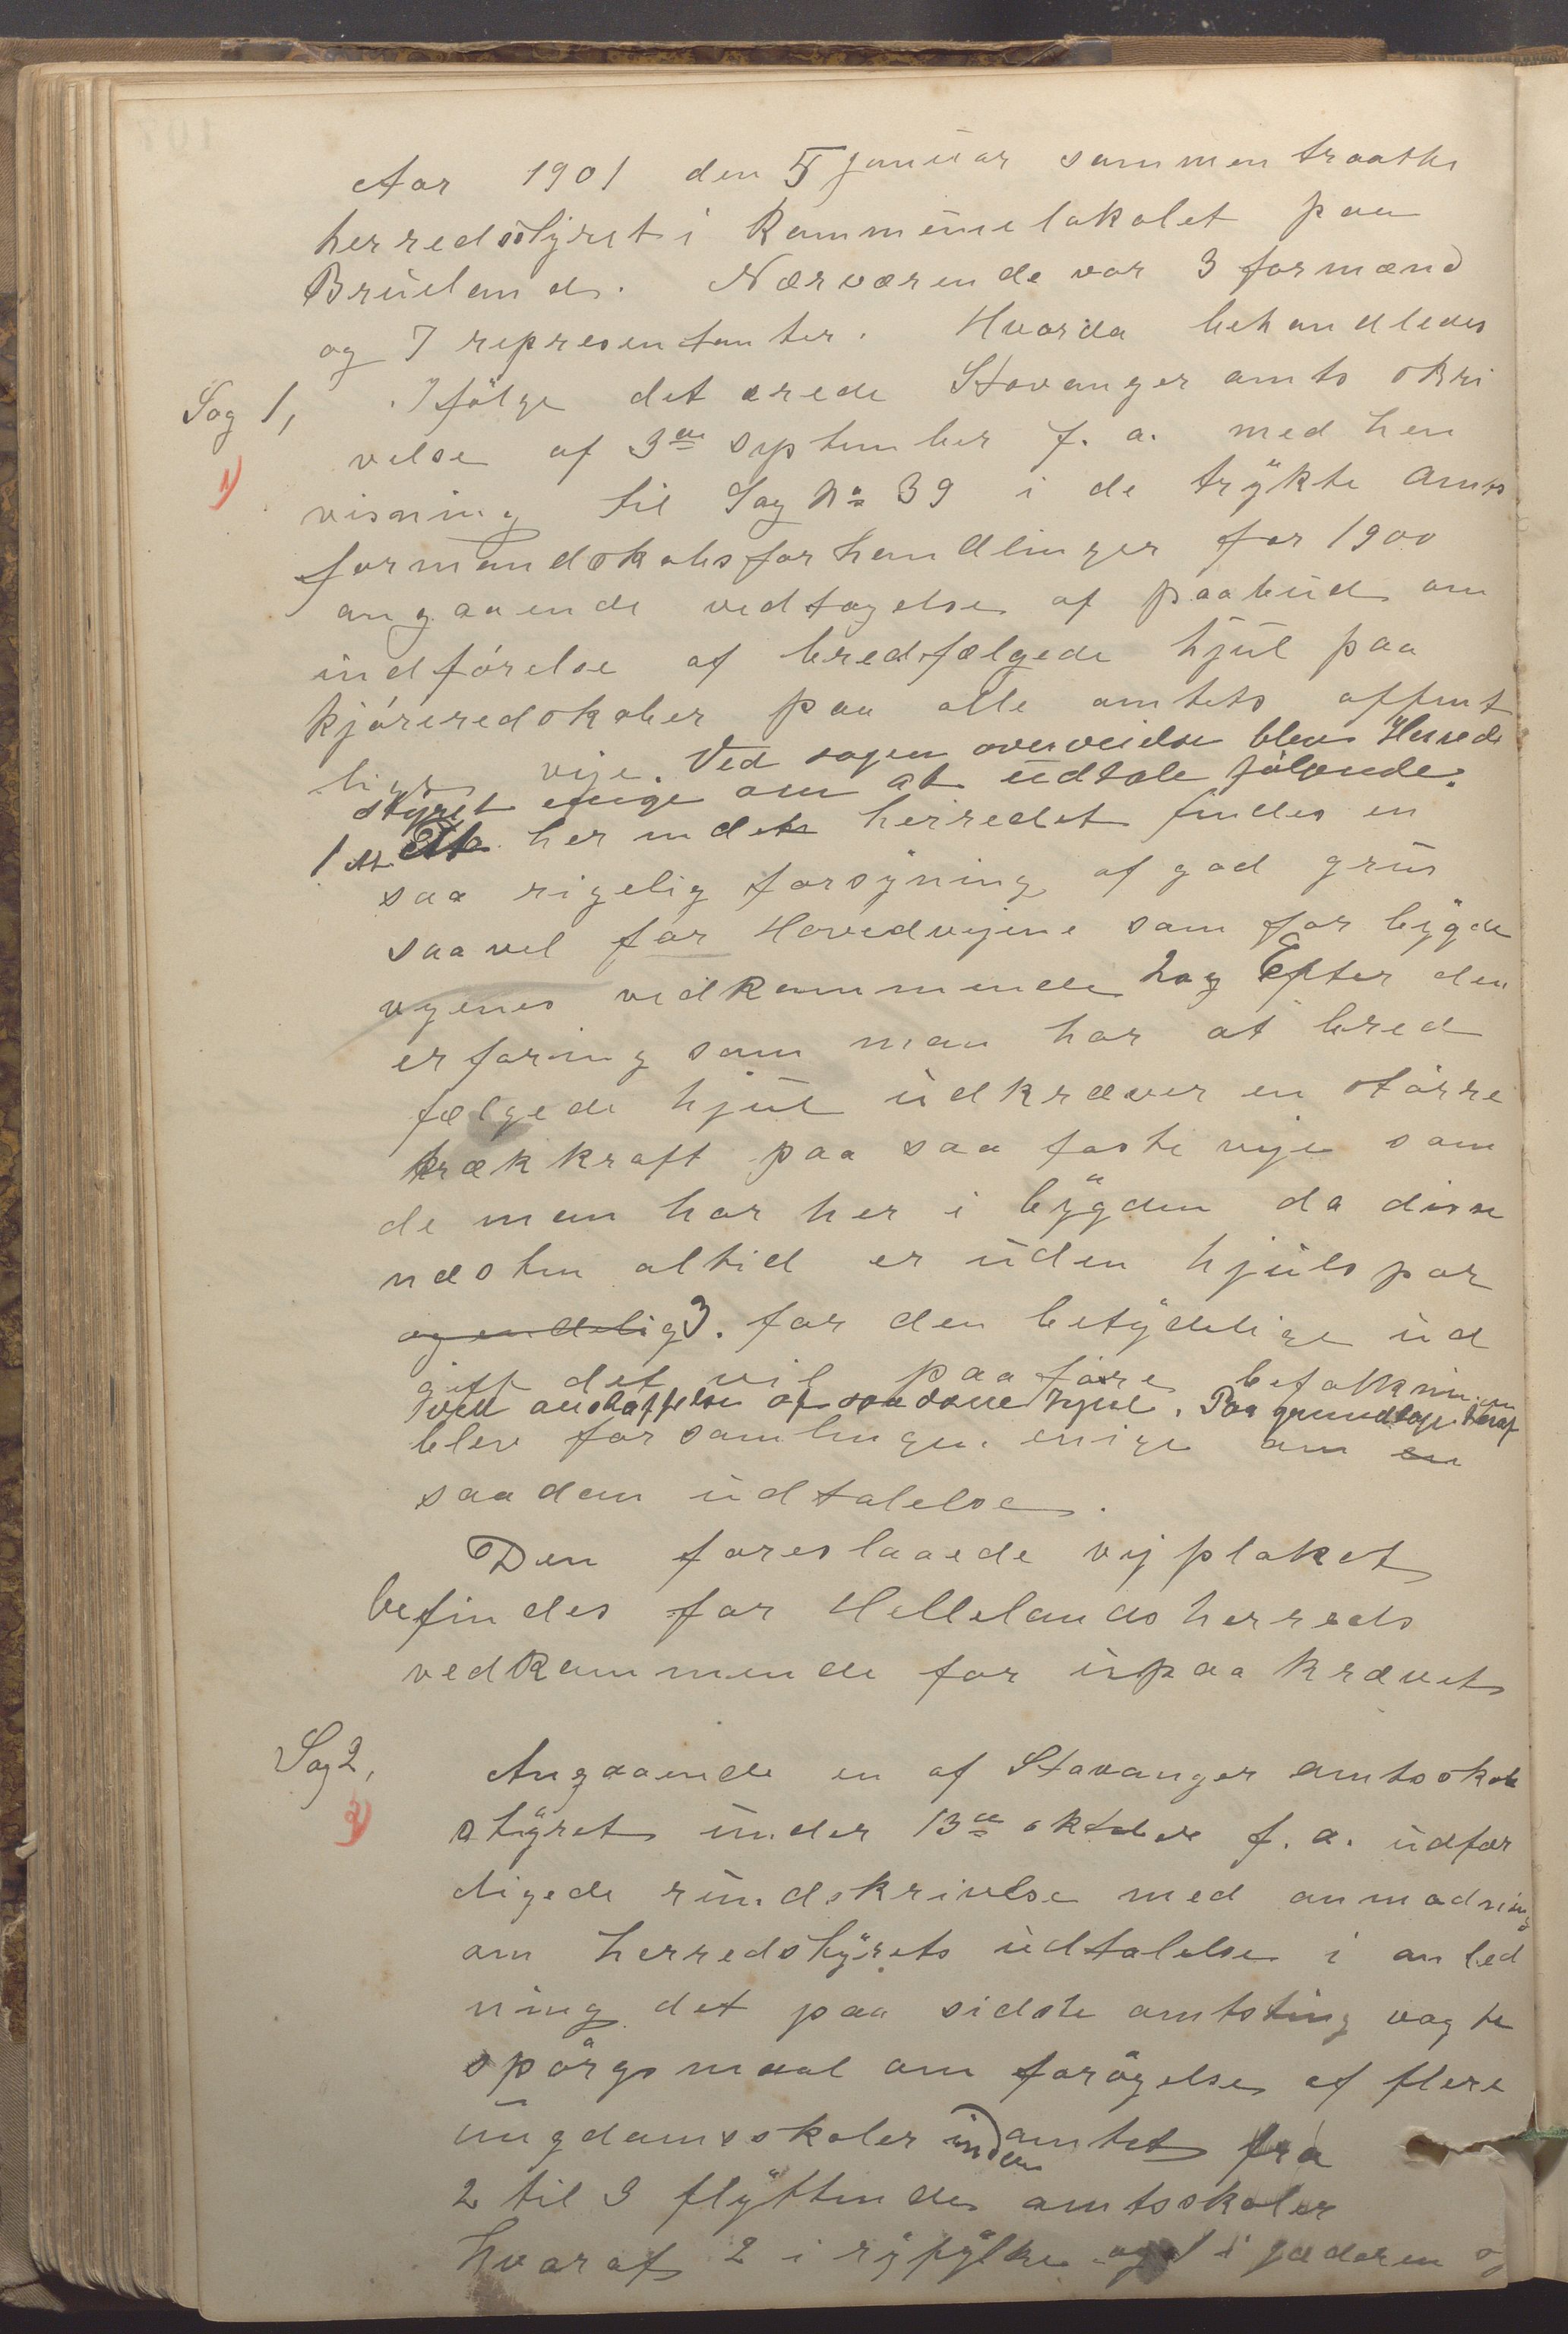 Aar 1901 den 5 januar sammentraatte
herredsstyret i Kommunelokalet paa
Brueland. Nærværende var 3 formænd
og 7 representanter. Hvorda behandledes
Sag 1, Ifölge det ærede Stavanger amts skri
velse af 3de september f. a. med hen
1) visning til Sag No 39 i de trykte amts
formandskabsforhandlinger for 1900
angaaende vedtagelse af paabud om
indförelse af bredfælgede hjul paa
kjöreredskaber paa alle amtets offent
lige veje. Ved sagen overveielse blev Herreds
styret enige om at udtale fölgende.
1 At her indet herredet findes en
saa rigelig forsyning af god grus
saavel for Hovedvejene som for bygde
vejenes vedkommende 2 og Efter den
erfaring som man har at bred
fælgede hjul udkræver en större
trækkraft paa saa faste veje som
de man har her i bygden da disse
næsten altid er uden hjulspor
og endelig 3. for den betydelige ud
gift det vil paaföre befolkningen
ved anskaffelse af saadanne hjul. Paa grundlage heraf
blev forsamlingen enige om en
saadan udtalelse.
Den foreslaaede vejplakat
befindes for Hellelands herreds
vedkommende for upaakrævet
Sag 2, Angaaende en af Stavanger amtsskole
2) styret under 13de oktober f. a. udfær
digede rundskrivelse med anmodning
om herredstyrets udtalelse i anled
ning det paa sidste amtsting vagte
spörgsmaal om forögelse af flere
ungdomsskoler inden amtet fra
2 til 3 flyttende amtsskoler
hvoraf 2 i ryfylke og 1 i jæderen og